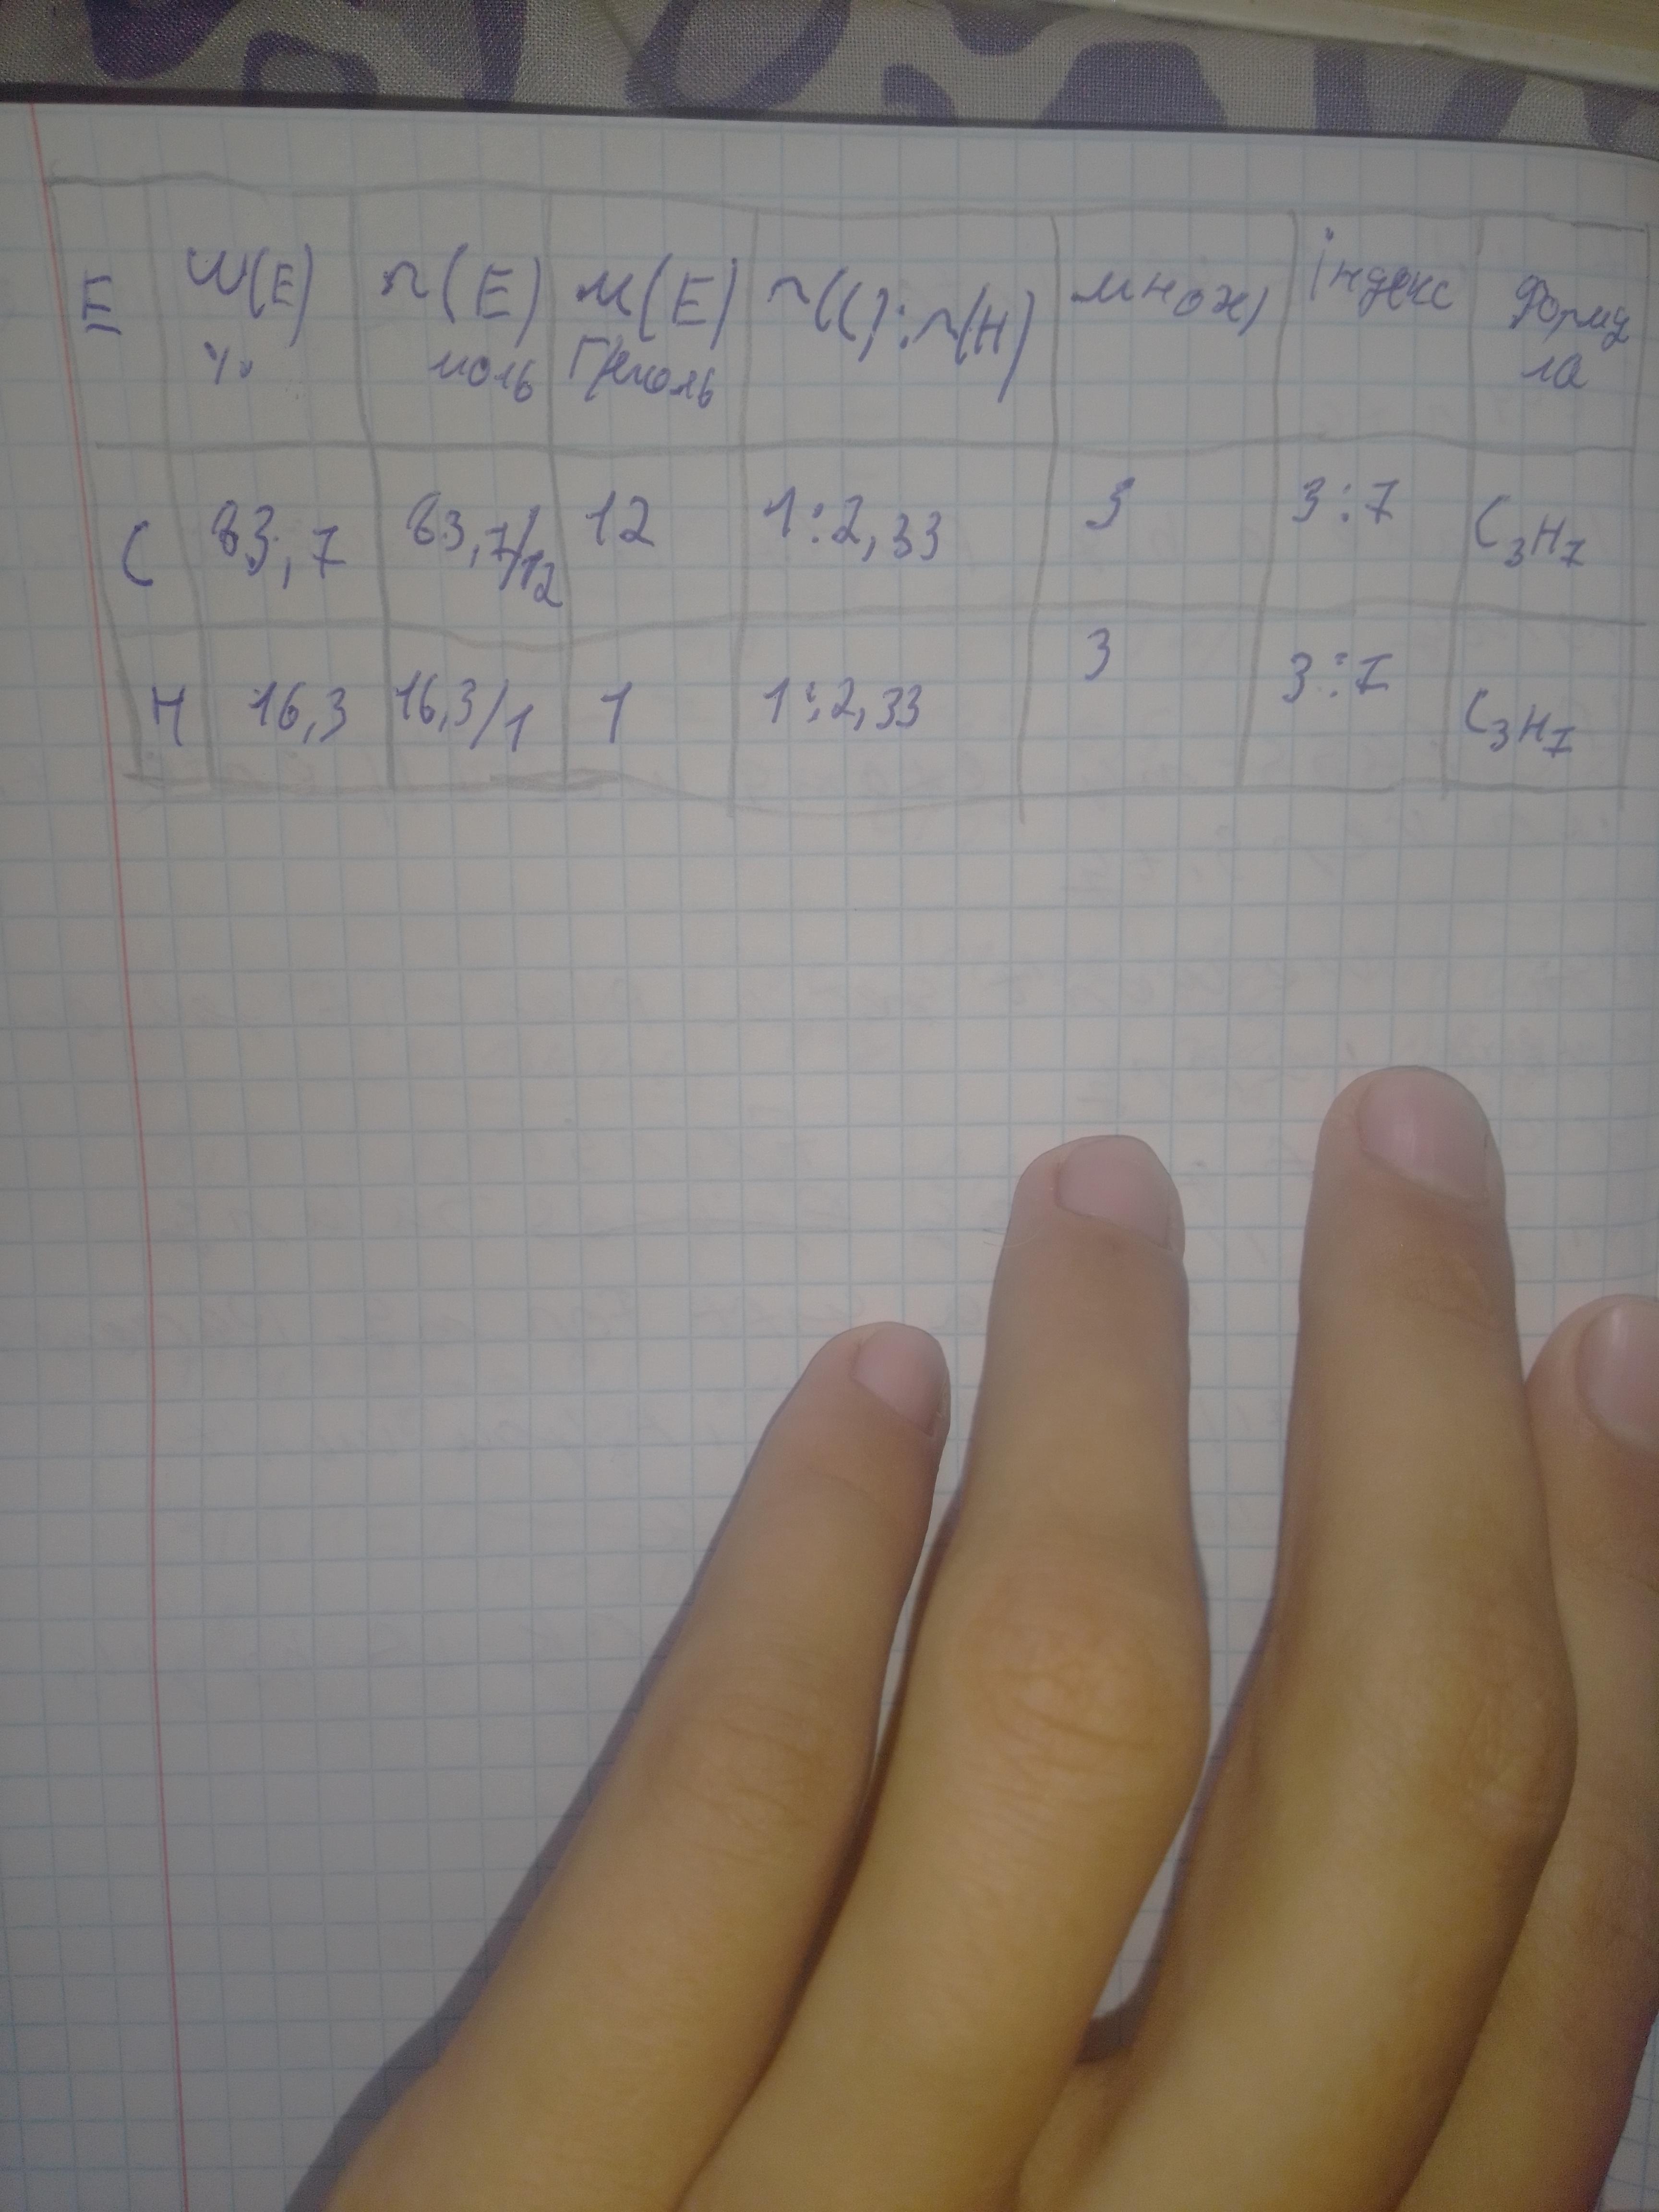 E W(E) % n(E) моль M(E) Г/моль n(C):n(H) множ, індекс Форму
ла
C 83,7 83,7/12 12 1:2,33 3 3:7 C₃H₇
H 16,3 16,3/1 1 1:2,33 3 3:7 C₃H₇